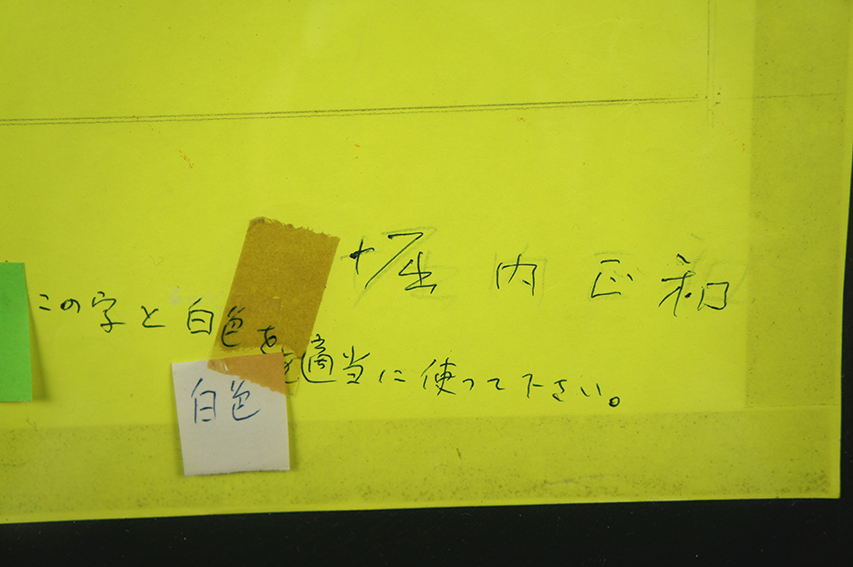 堀内正和
この字と白色を適当に使って下さい。
白色